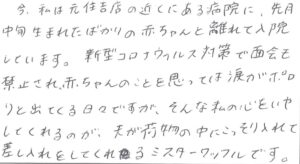 今、私は元住吉店の近くにある病院に、先月
中旬生まれたばかりの赤ちゃんと離れて入院
しています。新型コロナウィルス対策で面会も
禁止され、赤ちゃんのことを思っては涙がポロ
リと出てくる日々ですが、そんな私の心をいや
してくれるのが、夫が荷物の中にこっそり入れて
差し入れをしてくれるミスターワッフルです。